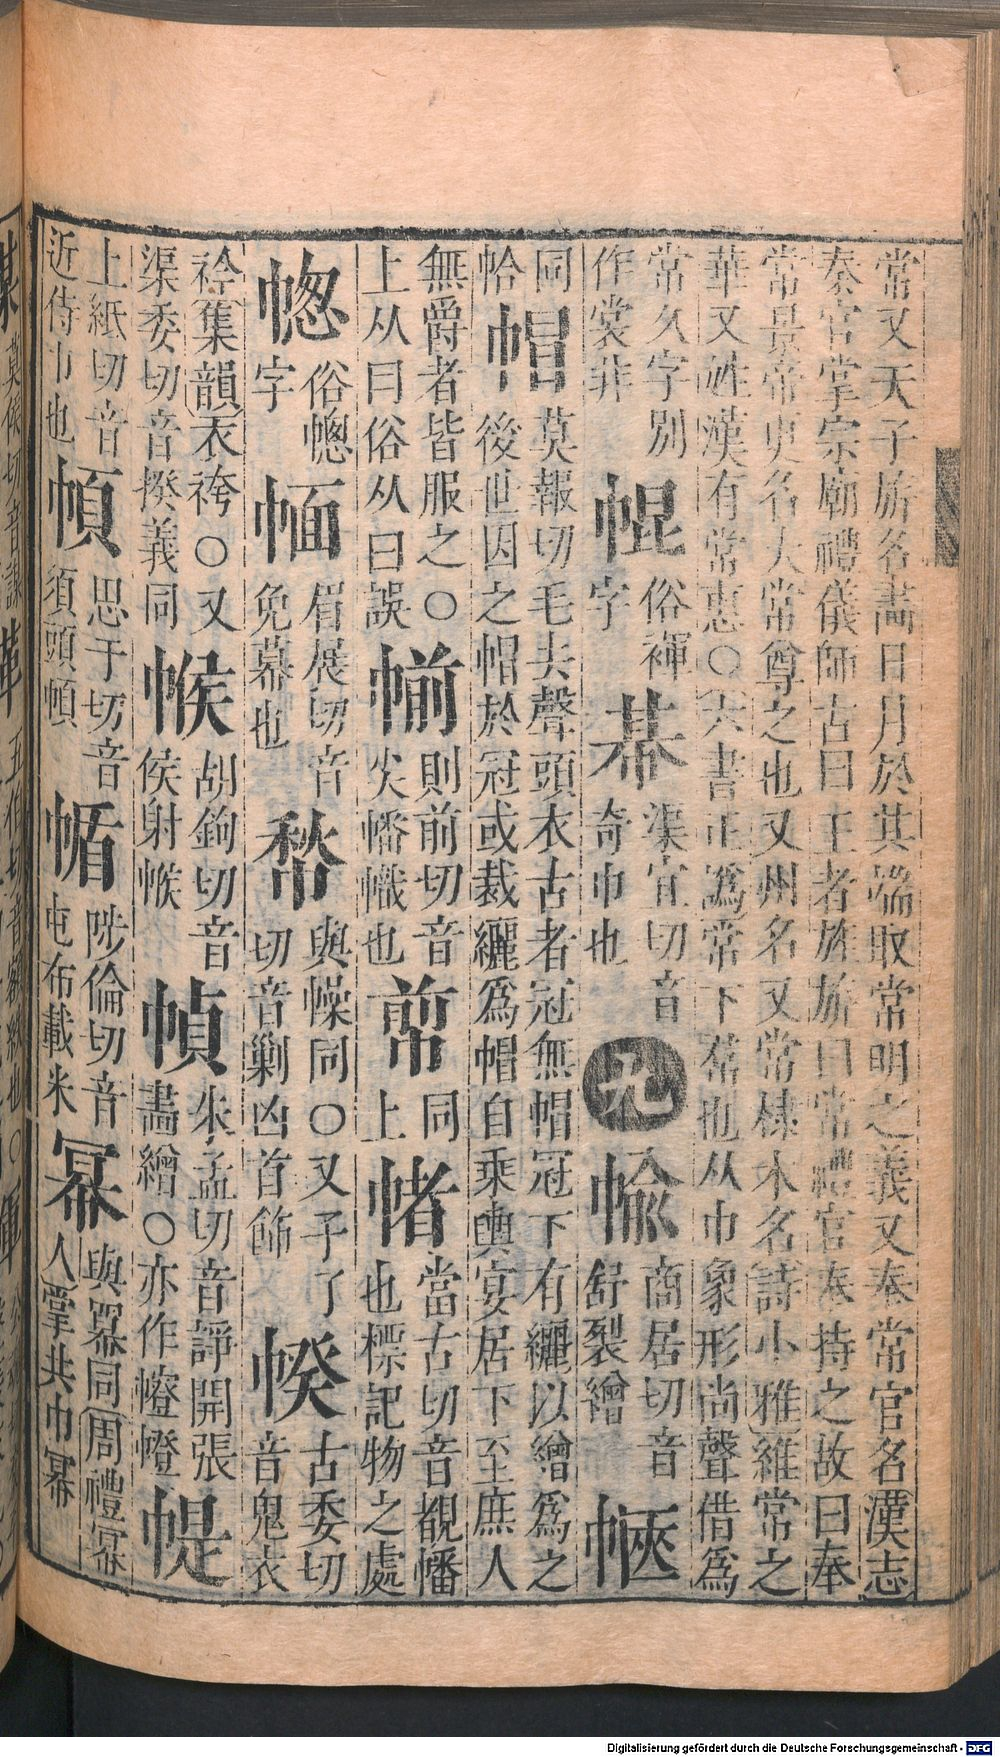 常又天子旂名畵日月於其端取常明之義又奉常官名漢志
秦官掌宗廟禮儀師古曰王者旌旂曰常禮官奉持之故曰奉
常景帝更名大常尊之也又州名又常棣木名詩小雅維常之
華又姓漢有常惠○六書正譌常下帬也从巾象形尚聲借爲
常久字別
作裳非
帽
俗褌
字
帺
渠宜切音
奇巾也
九
㡏
商居切音
舒裂繒
㥦
同
帢
帽
莫報切毛去聲頭衣古者冠無帽冠下有纚以繒爲之
後世因之帽於冠或裁纚爲帽自乘輿宴居下至庶人
無爵者皆服之○
上从曰俗从日誤
㡐
則前切音
尖幡幟也
㡐
同
上
帾
當古切音覩幡
也標記物之處
幒
俗幒
字
㡈
眉展切音
免幕也
㡑
與幧同○又子了
切音剿凶首飾
㨒
古委切
音鬼衣
衸集韻衣袴○又
渠委切音揆義同
㡗
胡鉤切音
侯射㡗
幀
朱孟切音諍開張
畵繒○亦作㡧幐
惿
上紙切音
近侍巾也
㡏
思于切音
須頭㡏
㡒
陟倫切音
屯布載米
幂
與冪同周禮冪
人掌共巾幂
Digitalisierung gefördert durch die Deutsche Forschungsgemeinschaft - DFG